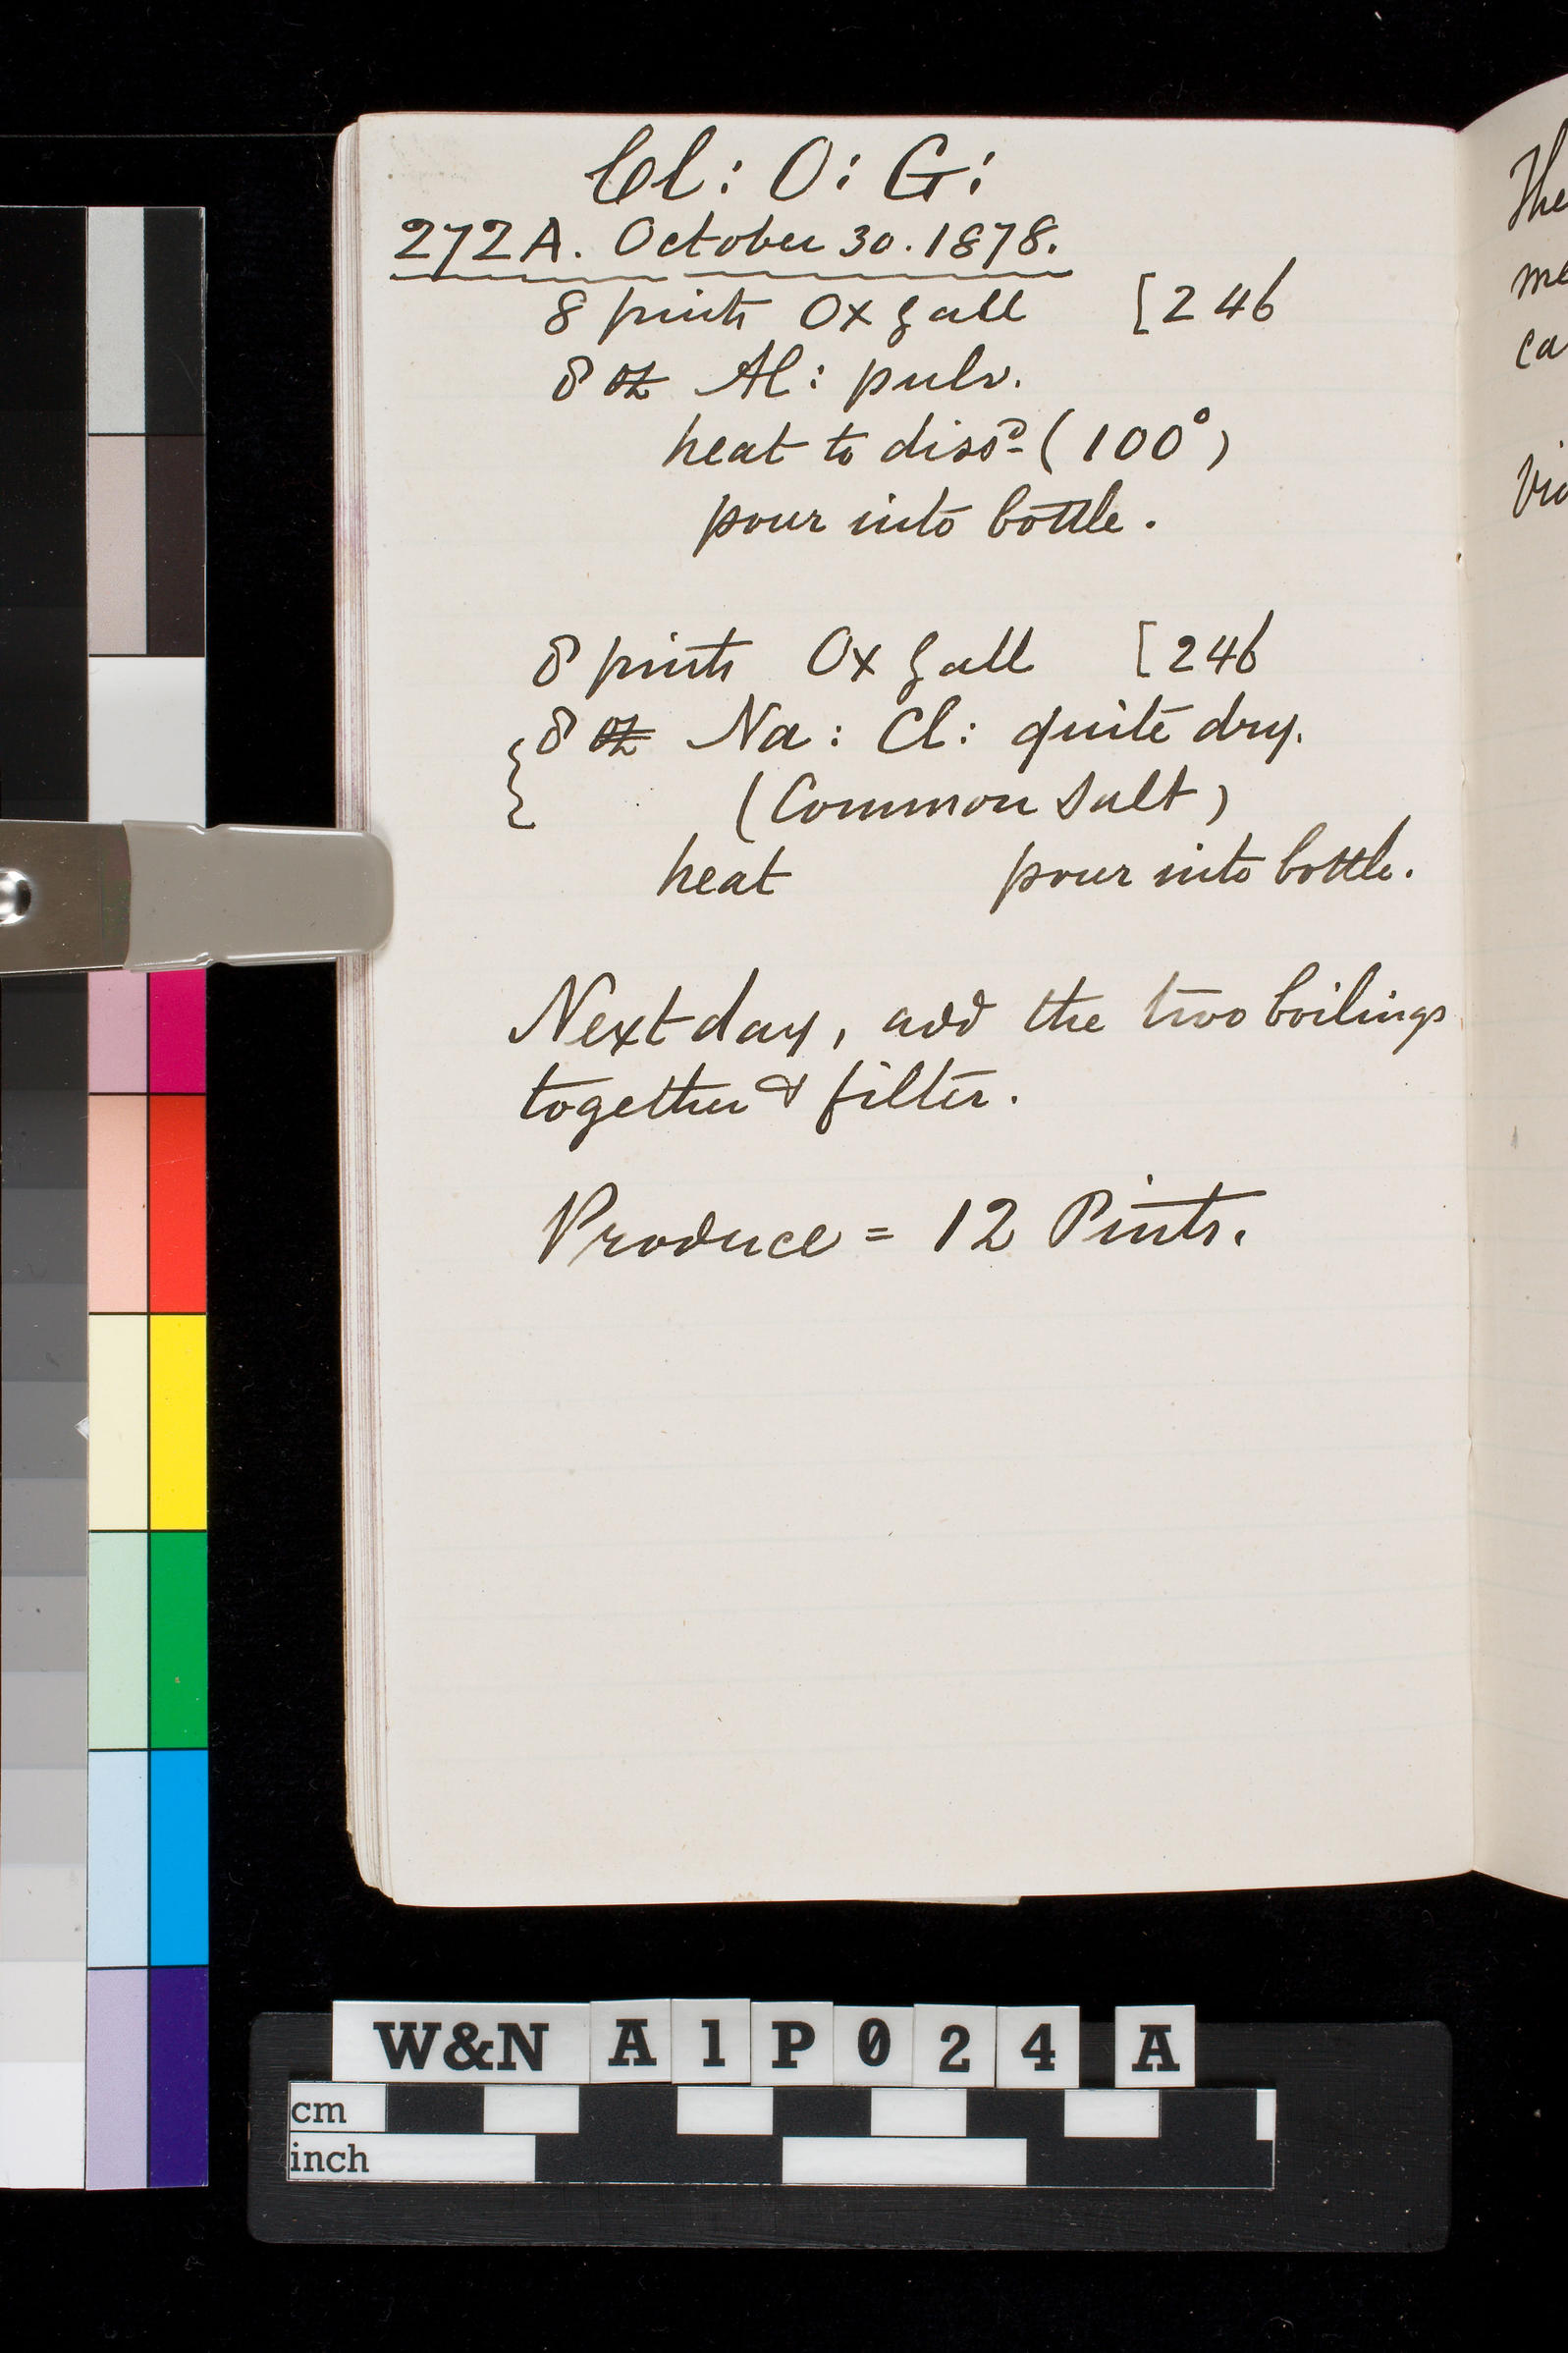 Cl: O: G:
272A. October 30. 1878.
8 pints Ox gall [246
8 oz Al: pulv.
heat to dissᵒ (100°)
pour into bottle.
8 pints Ox gall [246
8 oz Na: Cl: quite dry.
(Common Salt)
heat pour into bottle.
Next day, add the two boilings
together & filter.
Produce = 12 Pints.
The
me
ca
W&N A1P024 A
cm
inch